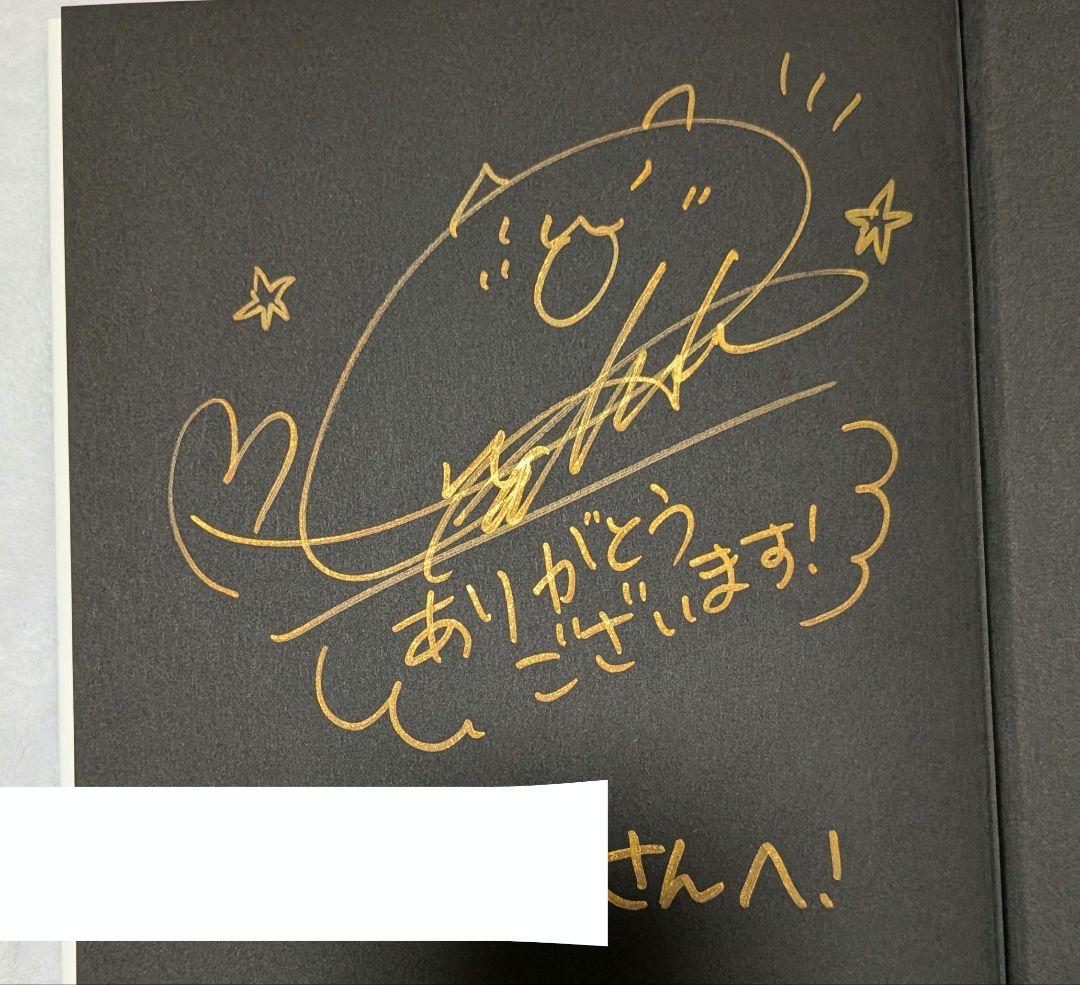 ありがとう
ございます!
さんへ!